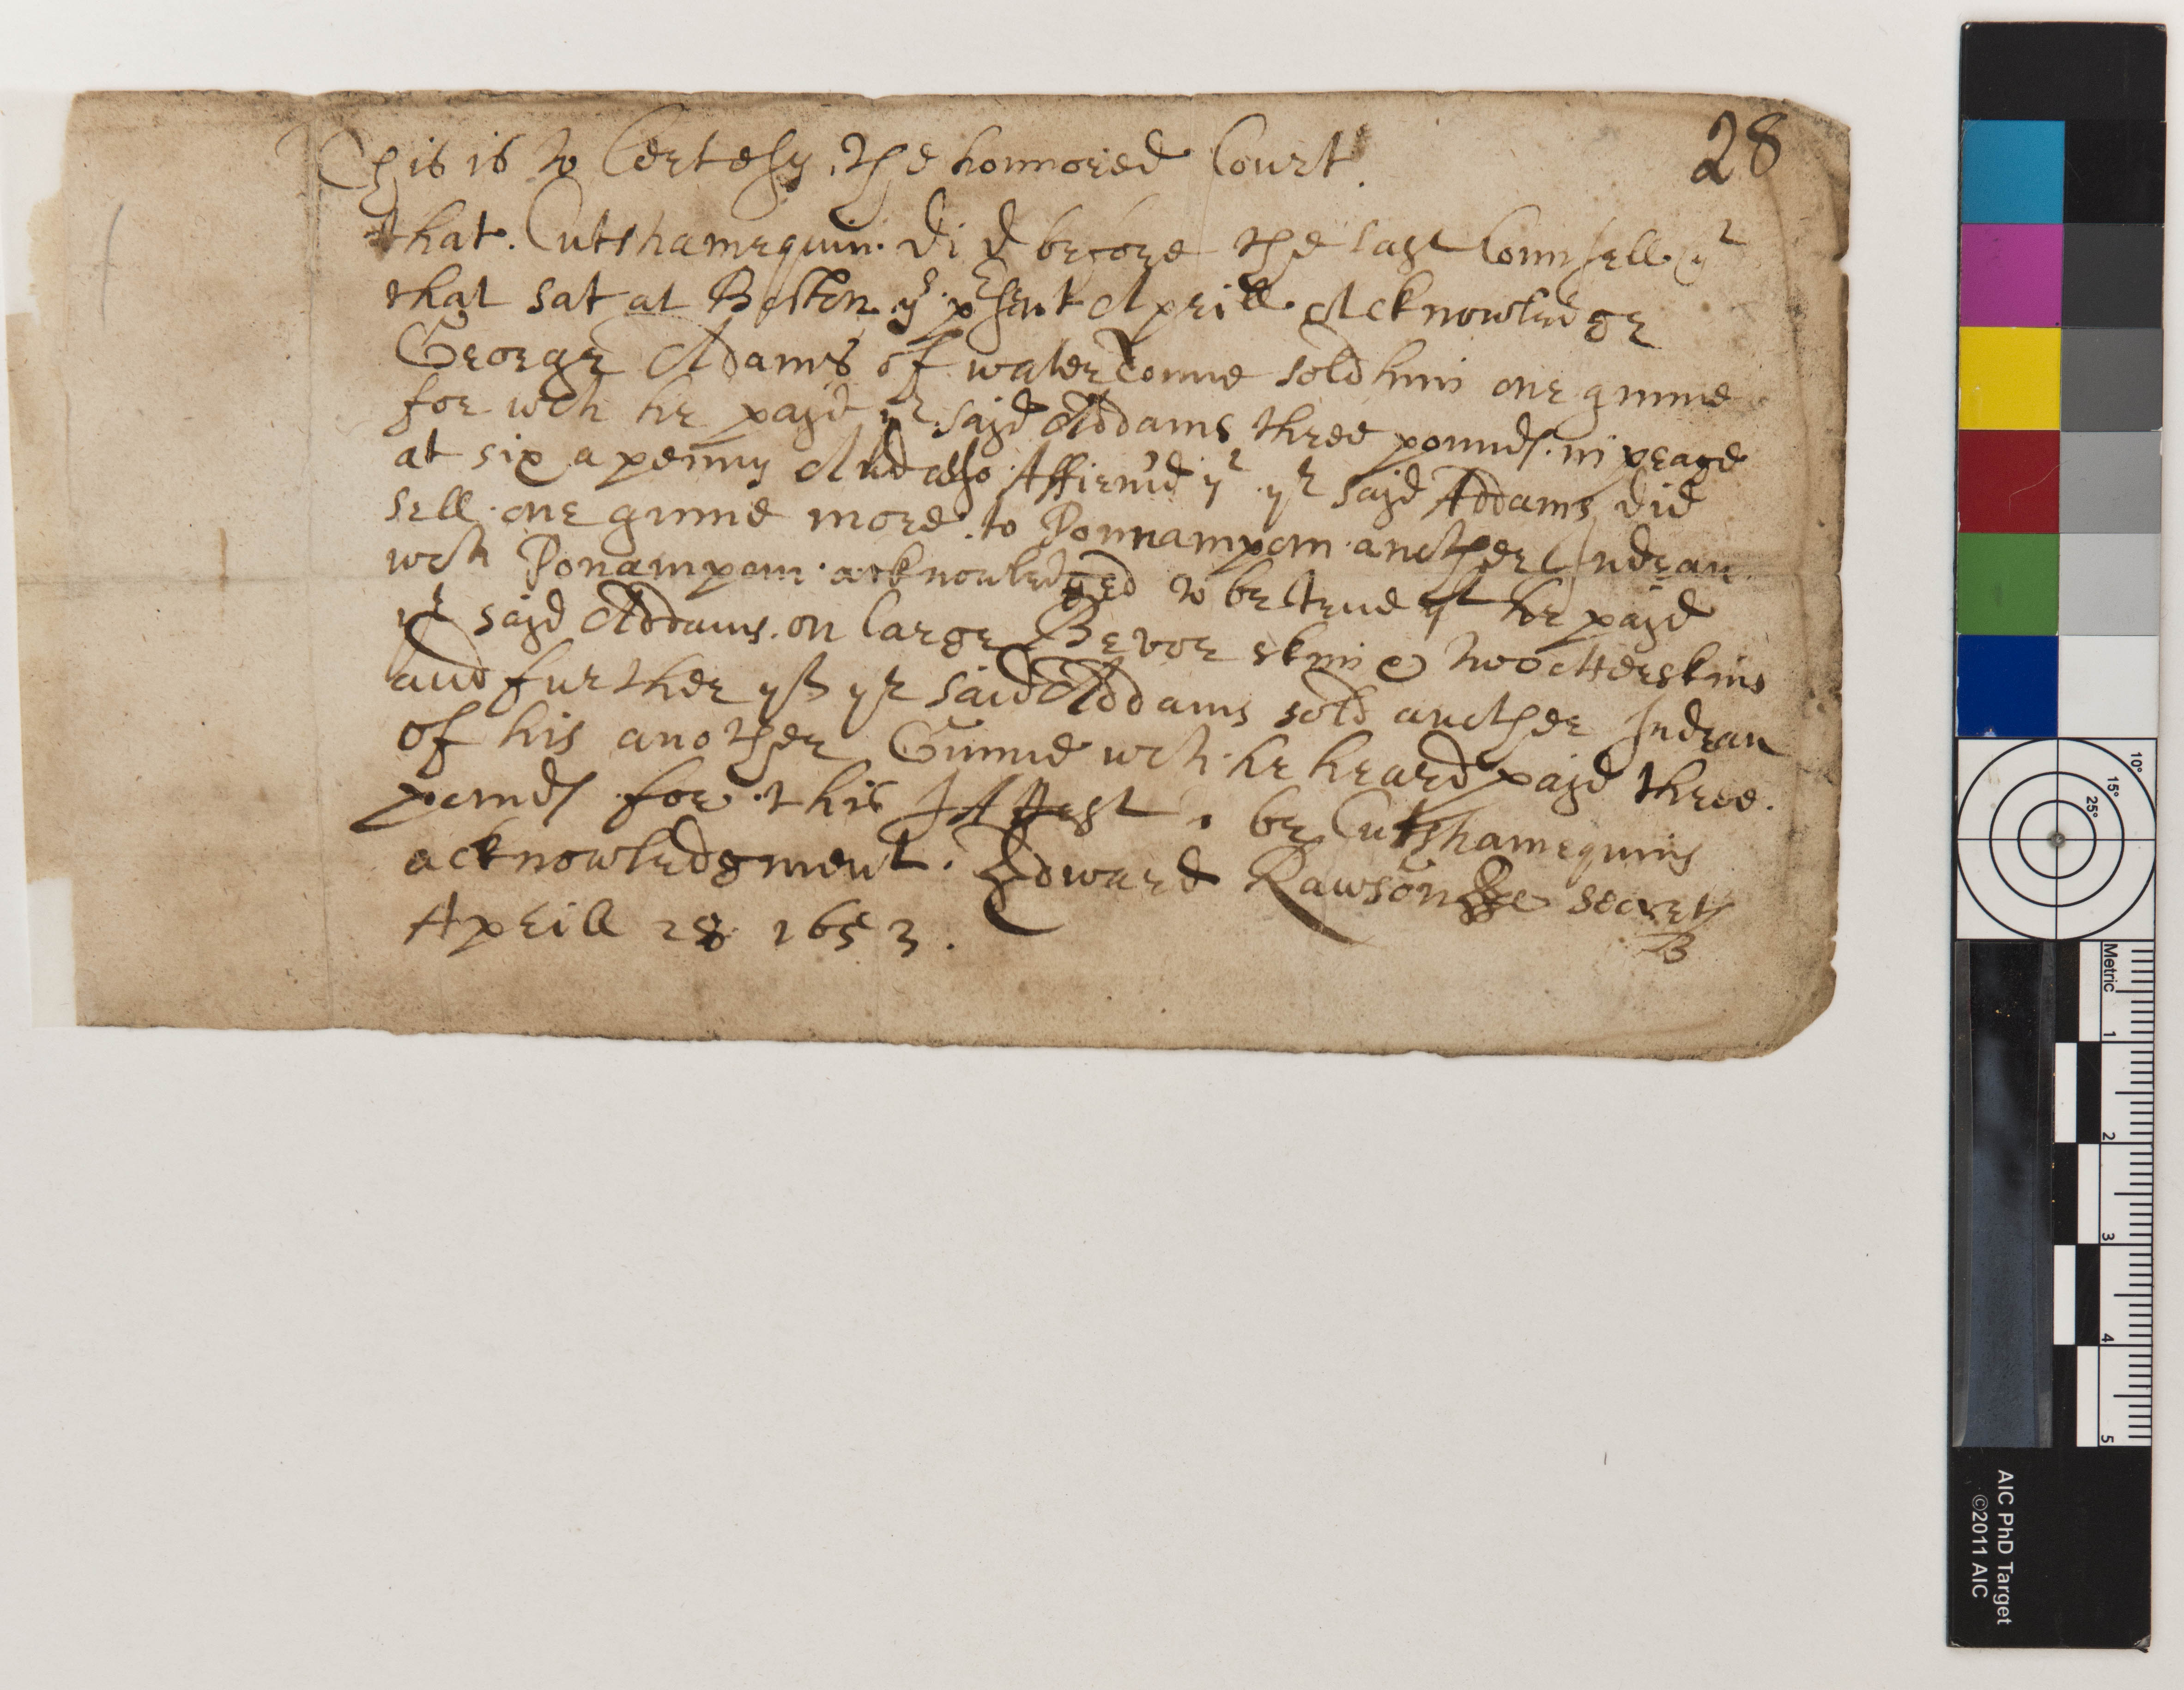 28
This is to Certefy the honnored Court
that Cutshamequin did before the last Counsell yt
that sat at Boston ys prsent Aprill Acknowledge
George Adams of watertoune sold him one gunne
for wch he payd ye sayd Addams three pounds in peage
at six a penny And also Affirm'd yt ye sayd Addams did
sell one gunne more to Ponnampom another Indean
wch Ponampam acknowledged to be true yt he payd
ye sayd Addams on large Bevor skin & two otterskins
and further yt ye said Addams sold another Indean
of his another Gunne wch he heard payd three
pounds for this I Attest be Cutshamequins
acknowledgment. Edward Rawson secrety
Aprill 28 1653.
10°
15°
25°
Metric
1
2
3
4
5
AIC PhD Target
©2011 AIC